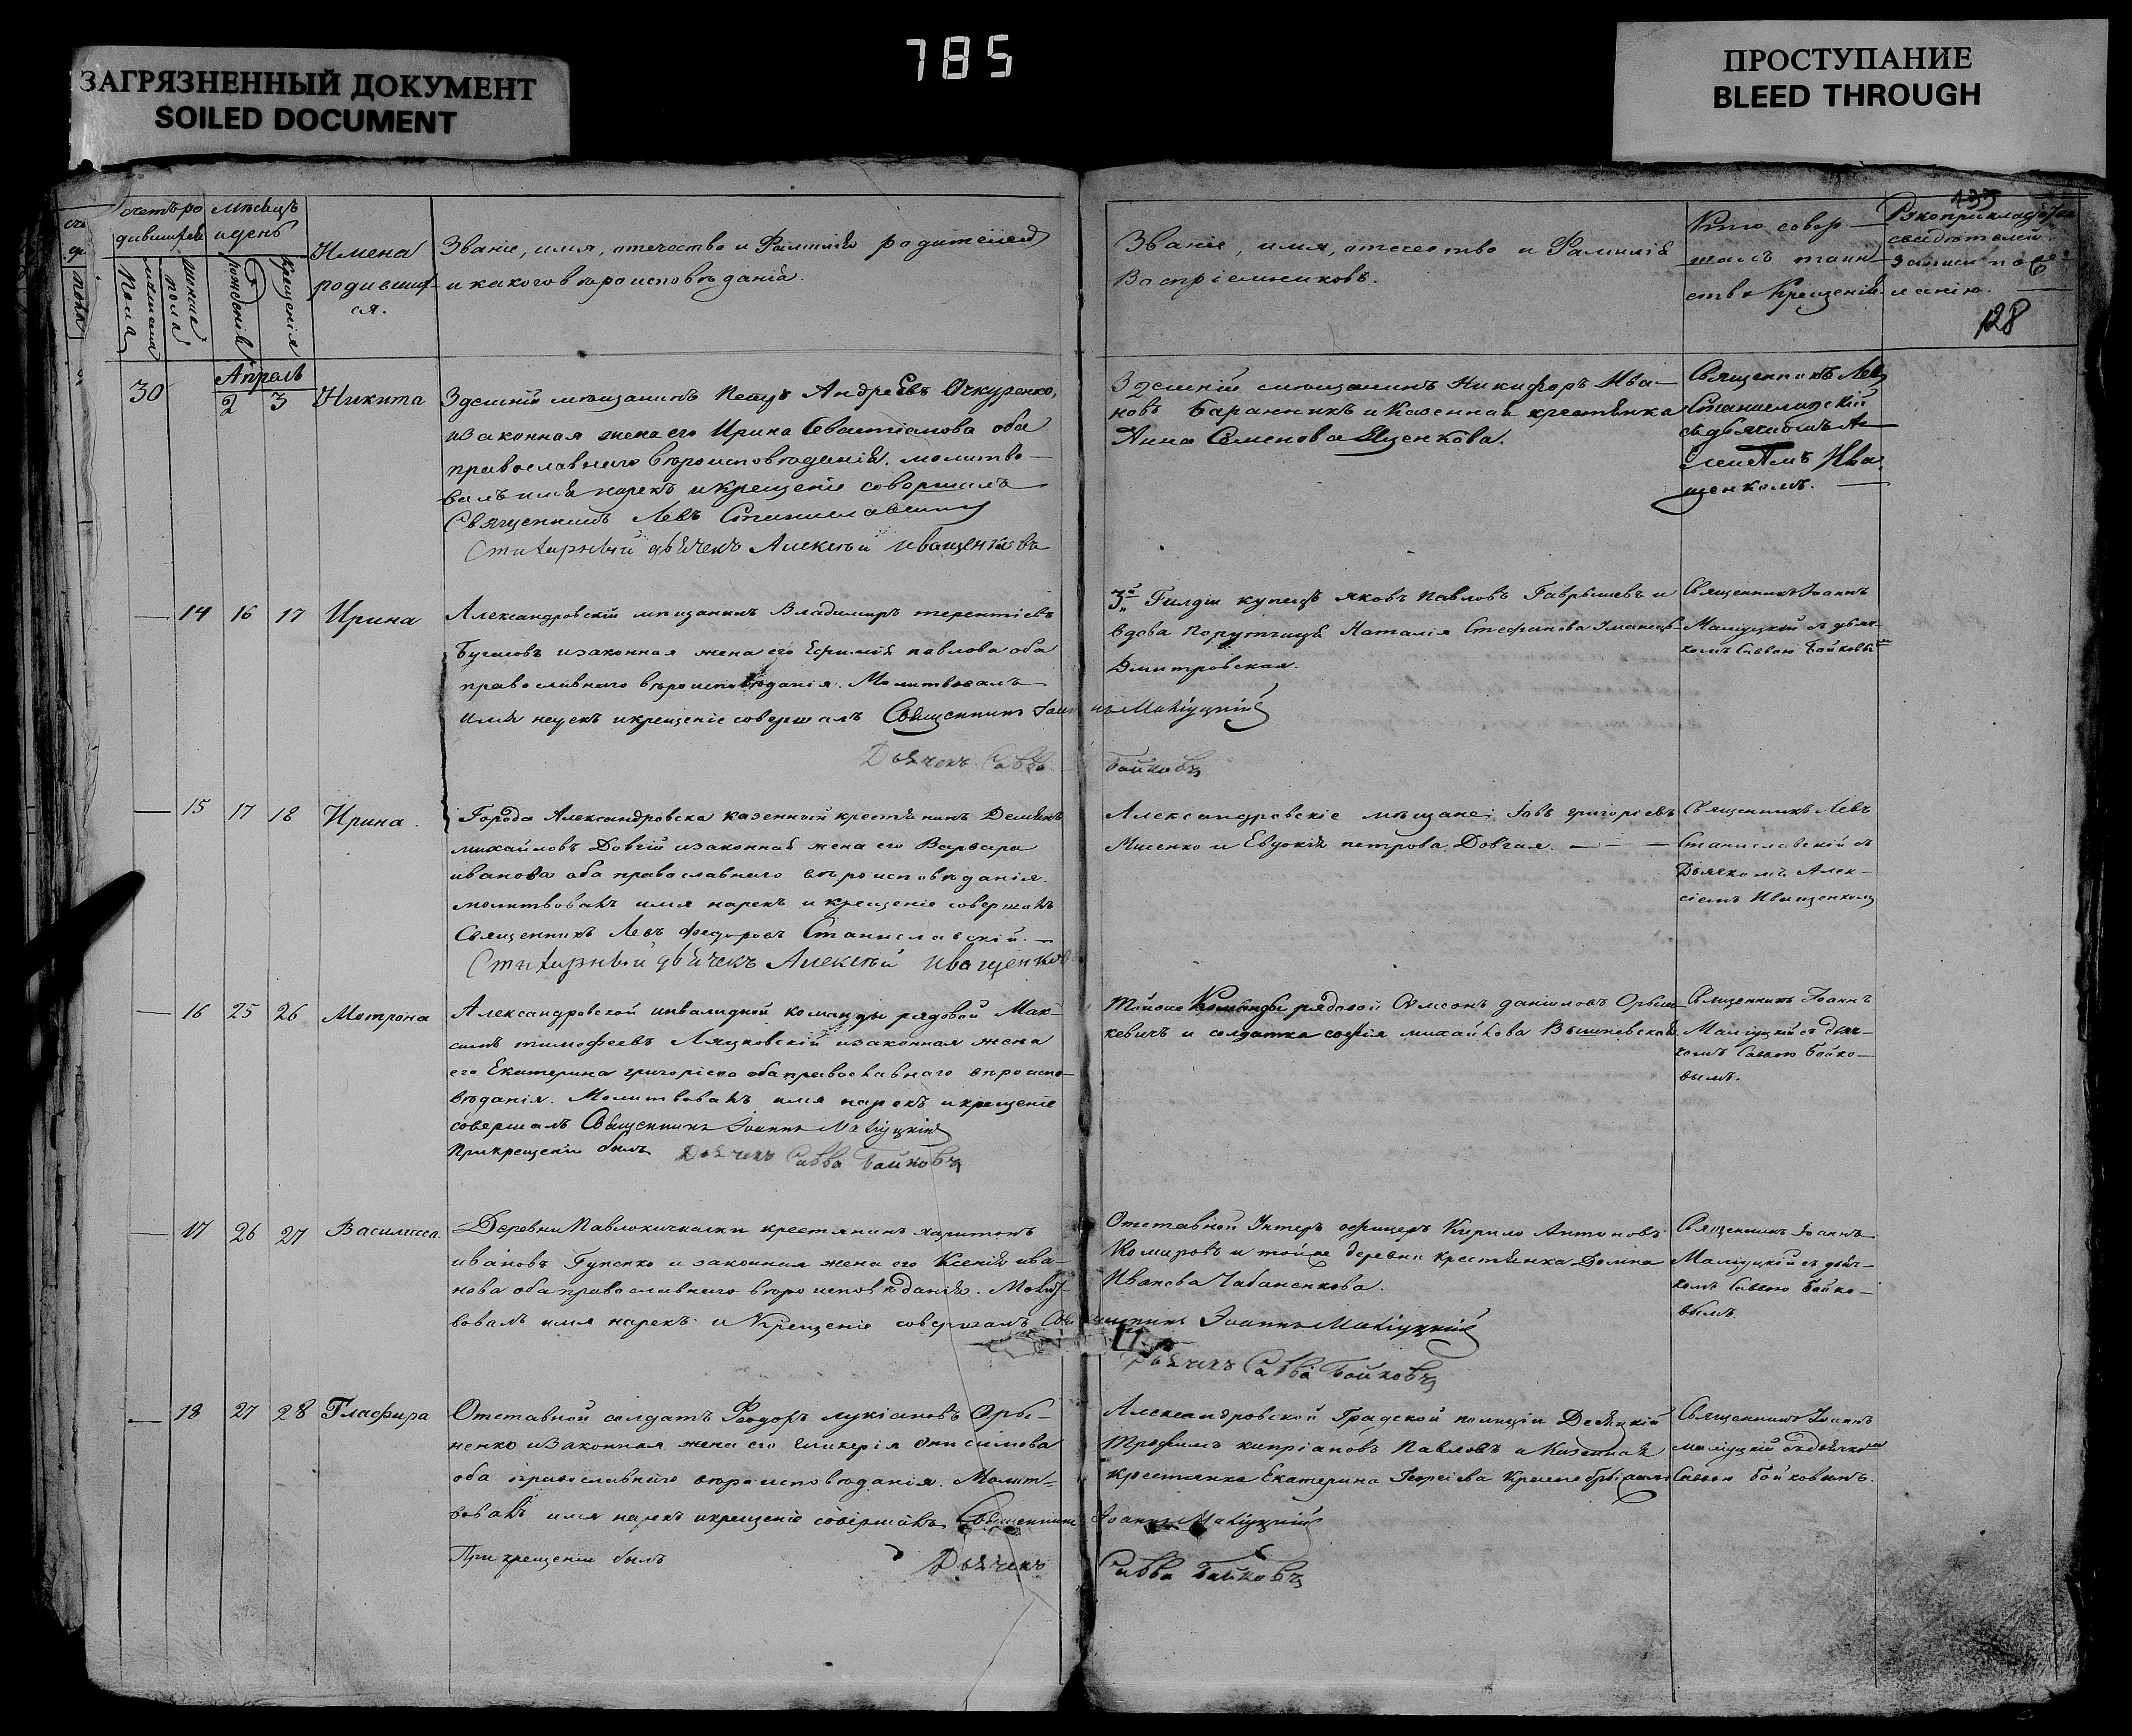 785
ЗАГРЯЗНЕННЫЙ ДОКУМЕНТ
SOILED DOCUMENT
ПРОСТУПАНИЕ
BLEED THROUGH
135
128
счетъ ро
дившихся
мѣсяцъ
и день
мужеска
пола
женска
пола
рожденія
крещенія
Имена
родивших
ся.
Званіе, имя, отечество и Фамилія родителей
и какого вѣроисповѣданія.
Званіе, имя, отечество и Фамилія
Воспріемниковъ.
Кто совер
шалъ таин
ство Крещенія
Рукоприкладство
свидѣтелей
записи по же
ланію.
Апрель
30 2 3 Никита
Здешній мѣщанинъ Петръ Андреевъ Очкуренко,
изаконная жена его Ирина Севастіанова оба
православнаго вѣроисповѣданія. молитво
валъ имя нарекъ и крещеніе совершалъ
Священникъ Левъ Станиславскій
Стихарный дьячекъ Алексѣй Иващенковъ
Здешній мѣщанинъ Никифоръ Ива
новъ Баранникъ и Казенная крестьянка
Анна Семенова Ященкова.
Священникъ Левъ
Станиславскій
съ дьячкомъ Ал
ексіемъ Ива
щенкомъ.
14 16 17 Ирина
Александровскій мѣщанинъ Владимиръ терентіевъ
изаконная жена его Ефимія павлова оба
православнаго вѣроисповѣданія. Молитвовалъ
имя нарекъ и крещеніе совершалъ Священникъ Іоаннъ Маліуцкій
Дьячекъ Савва Байковъ
3й Гилдіи купецъ яковъ Павловъ Гаврышевъ и
вдова Порутчица Наталія Стефанова
Дмитровская.
Священникъ Іоаннъ
Маліуцкій съ дьяч
комъ Саввою Байковым
15 17 18 Ирина.
Города Александровска казенный крестьянинъ Демьянъ
михайловъ Довгій изаконная жена его Варвара
иванова оба православнаго вѣроисповѣданія.
молитвовалъ имя нарекъ и крещеніе совершалъ
Священникъ Левъ Федоровъ Станиславскій.
Стихарный дьячекъ Алексѣй Иващенковъ
Александровскіе мѣщане: Іовъ григоріевъ
Мисенко и Евдокія петрова Довгая.
Священникъ Левъ
Станиславскій съ
Дьячкомъ Алек
сіемъ Иващенкомъ
16 25 26 Мотрона
Александровской инвалидной команды рядовой Мак
симъ тимофеевъ Ляцковскій изаконная жена
его Екатерина григоріева оба православнаго вѣроиспо
вѣданія. Молитвовалъ имя нарекъ и крещеніе
совершалъ Священникъ Іоаннъ Маліуцкій
При крещеніи былъ Дьячекъ Савва Байковъ
Тойже Команды рядовой Симеонъ даниловъ
кевичъ и солдатка софія михайлова Вышневская
Священникъ Іоаннъ
Маліуцкій съ дьяч
комъ Саввою Байко
вымъ.
17 26 27 Василисса.
Деревни Павлокичкаски крестянинъ харитонъ
ивановъ Гупенко и законная жена его Ксенія ива
нова оба православнаго вѣроисповѣданія. Молит
вовалъ имя нарекъ и Крещеніе совершалъ Священникъ Іоаннъ Маліуцкій
Дьячекъ Савва Байковъ
Отставной Унтеръ офицеръ Кирило Антоновъ
Комаровъ и тойже деревни крестьянка Домна
Иванова Чабаненкова.
Священникъ Іоаннъ
Маліуцкій съ дьяч
комъ Саввою Байко
вымъ.
18 27 28 Гласфира
Отставной солдатъ Феодоръ лукіановъ Орѣ
ненко изаконная жена его гликерія Онисимова
оба православнаго вѣроисповѣданія. Молит
вовалъ имя нарекъ и крещеніе совершалъ Священникъ Іоаннъ Маліуцкій
При крещеніи былъ Дьячекъ Савва Байковъ
Александровской Градской полиціи Десяцкій
Трофимъ кипріановъ Павловъ и Казенная
крестянка Екатерина Георгіева
Священникъ Іоаннъ
маліуцкій съ дьячком
Саввою Байковымъ.